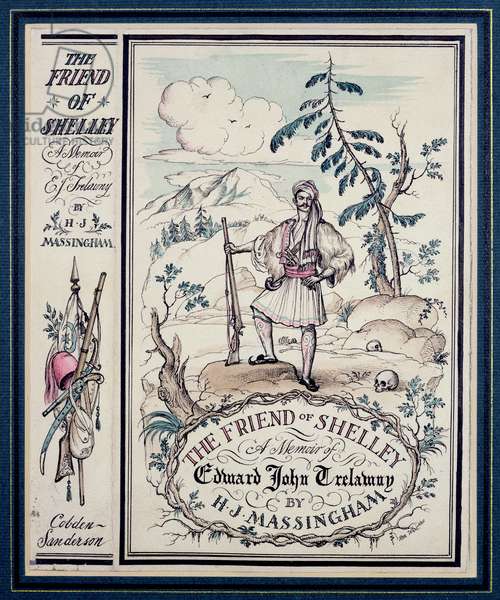 THE
FRIEND
OF
SHELLEY
A Memoir
of
E J Trelawny
BY
H·J
MASSINGHAM
Cobden-
Sanderson
THE FRIEND OF SHELLEY
A Memoir of
Edward John Trelawny
BY
H·J·MASSINGHAM
bridgeman